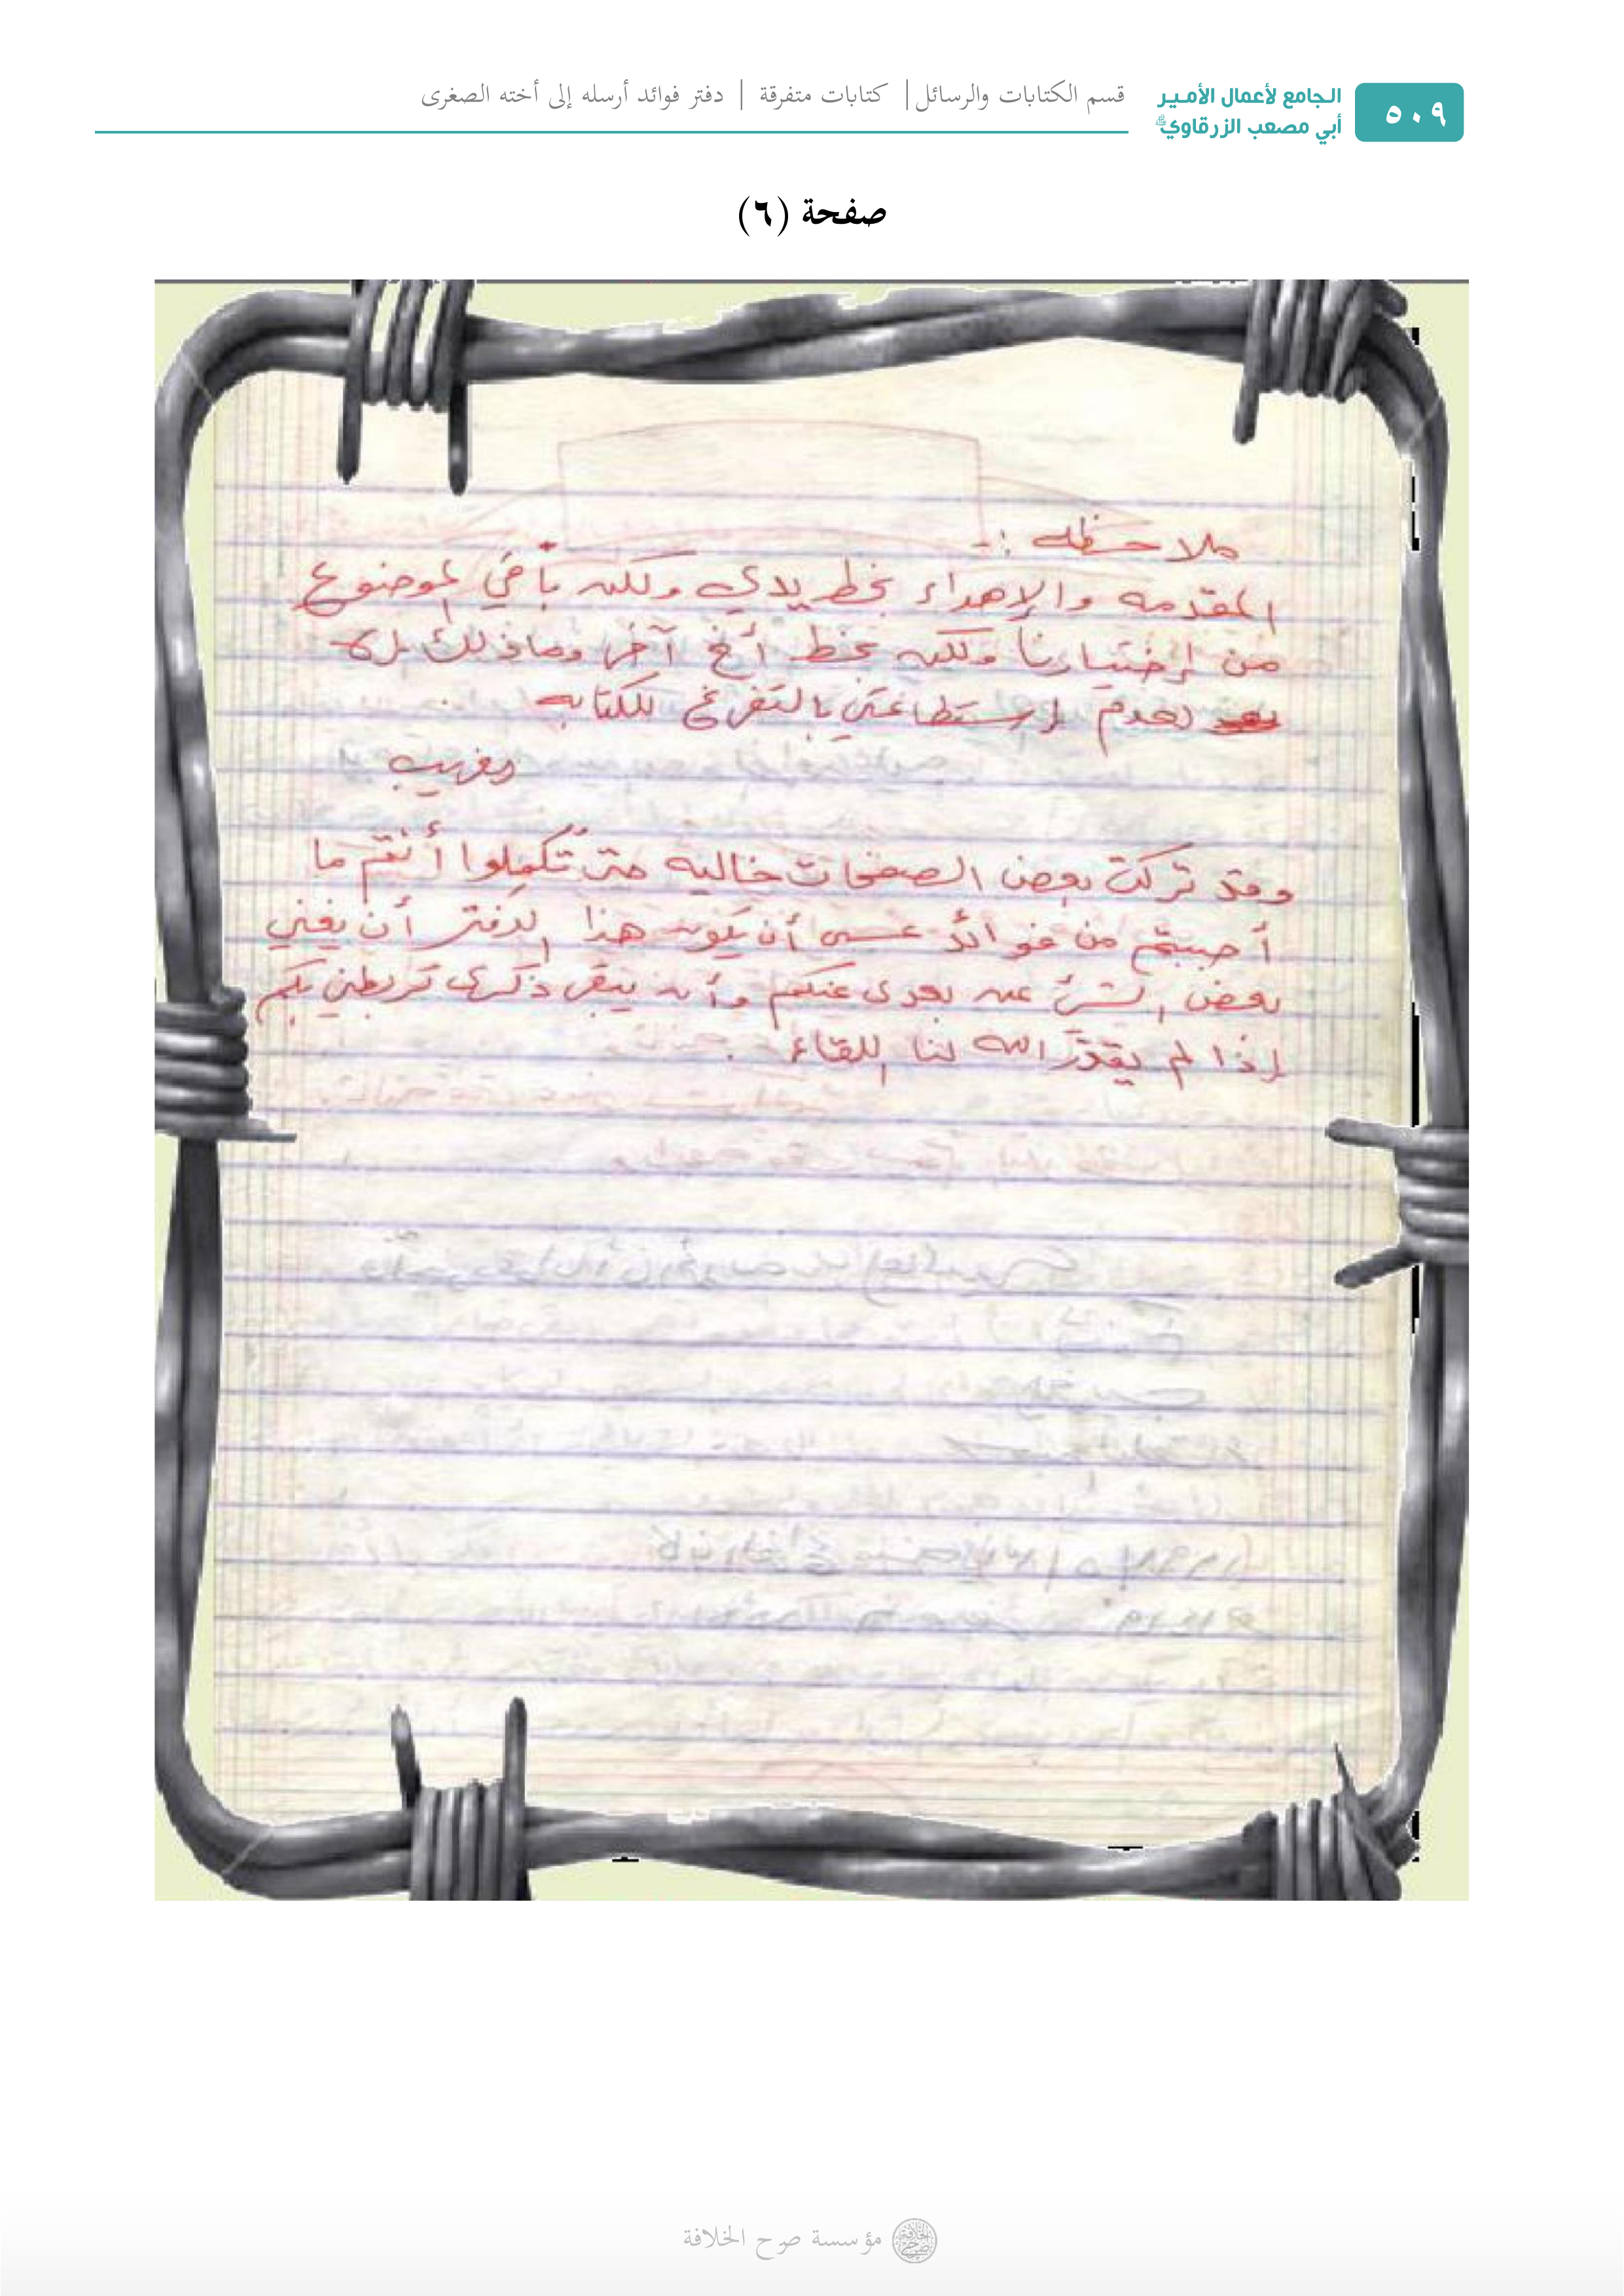 ٥٠٩
الجامع لأعمال الأمير
أبي مصعب الزرقاوي
قسم الكتابات والرسائل | كتابات متفرقة | دفتر فوائد أرسله إلى أخته الصغرى
صفحة (٦)
ملاحظه :-
المقدمه والإهداء بخط يدي ولكن باقي الموضوع
من إختيارنا ولكن بخط أخ آخر وما ذلك إلا
لعدم إستطاعتي بالتفرغ للكتابه
الغريب
وقد تركت بعض الصفحات خاليه حتى تُكملوا أنتم ما
أحببتم من فوائد عسى أن يكون هذا الدفتر أن يغني
بعض الشئ عن بعدى عنكم وأن يبقى ذكرى تربطني بكم
إذا لم يقدّر الله لنا اللقاء .
مؤسسة صرح الخلافة